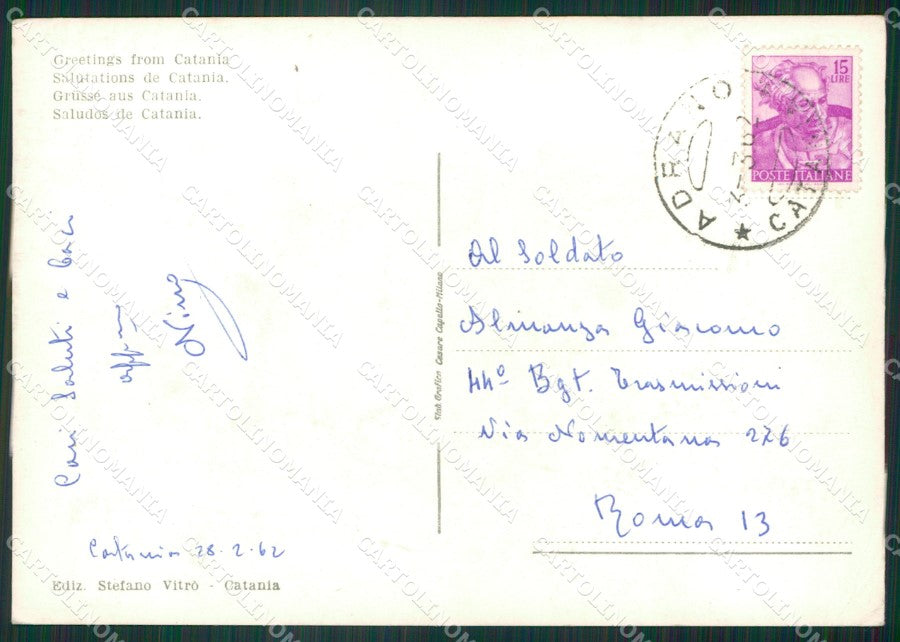 Greetings from Catania
Salutations de Catania.
Grüsse aus Catania.
Saludos de Catania.
15
LIRE
POSTE ITALIANE
ADRANO
CATANIA
Con Saluti e baci
Nino
Catania 28-2-62
Ediz. Stefano Vitrò - Catania
Stab. Grafico Cesare Capello-Milano
Al Soldato
Almanza Giacomo
44º Bgt. Trasmissioni
Via Nomentana 276
Roma 13
CARTOLINOMANIA